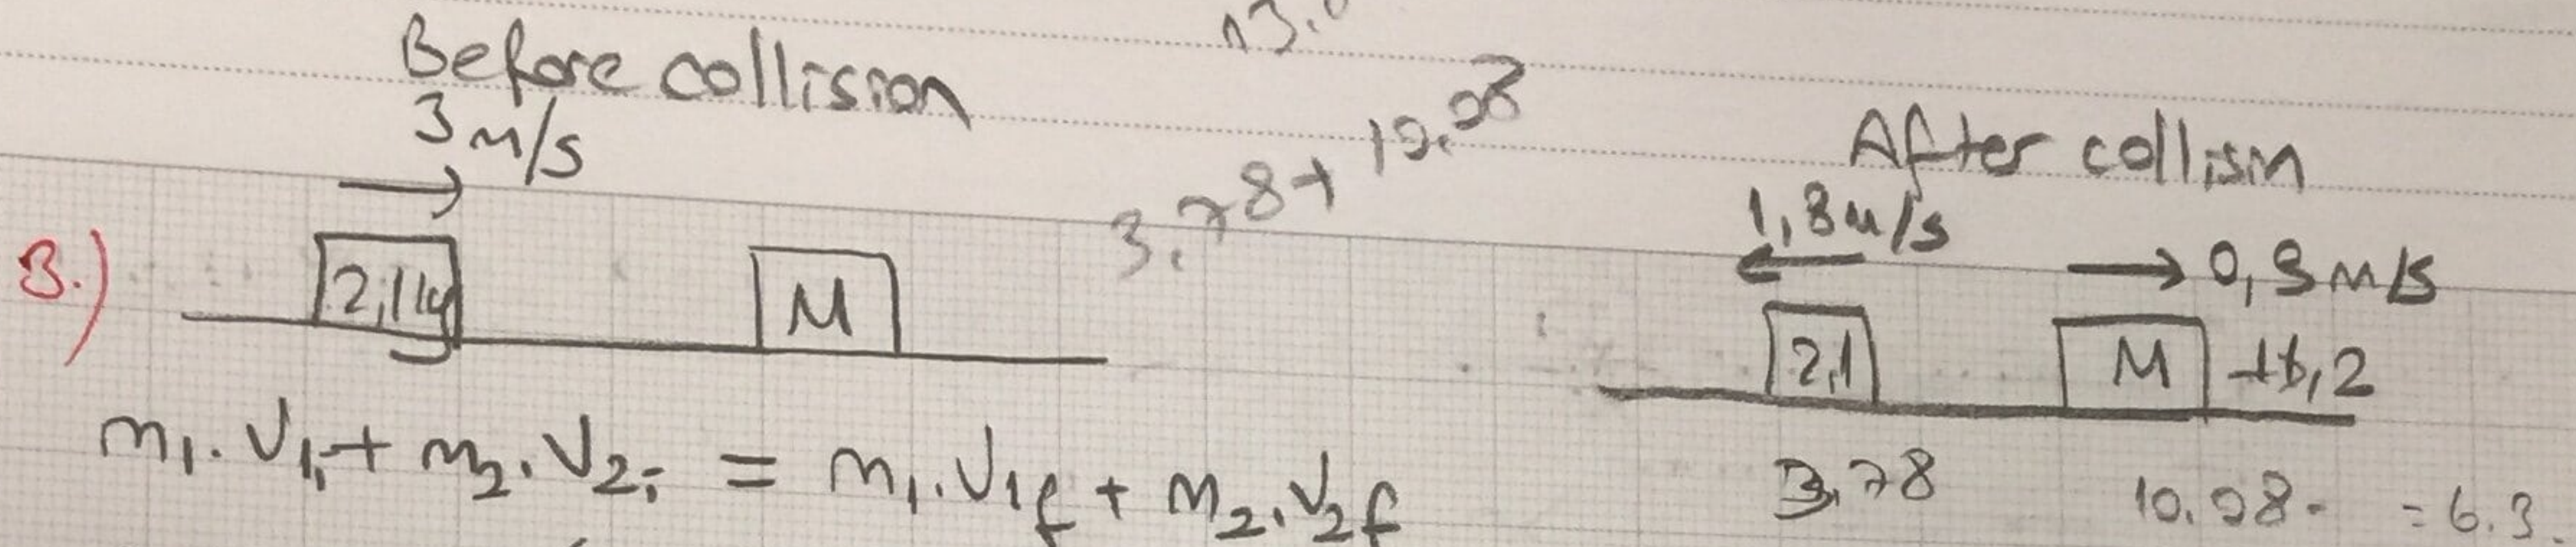 Before collision
3 m/s
13.0
3.78+10.08
After collisin
1,8 m/s
0,9 m/s
3.)
2,1kg
M
2,1
M
m1.V1i + m2.V2i = m1.V1f + m2.V2f
3,78
10.08.
=6.3